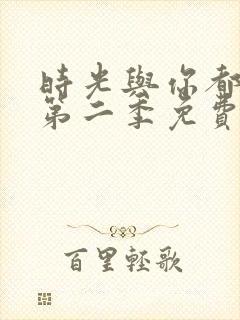 時光與你都
第二季免費
百里輕歌